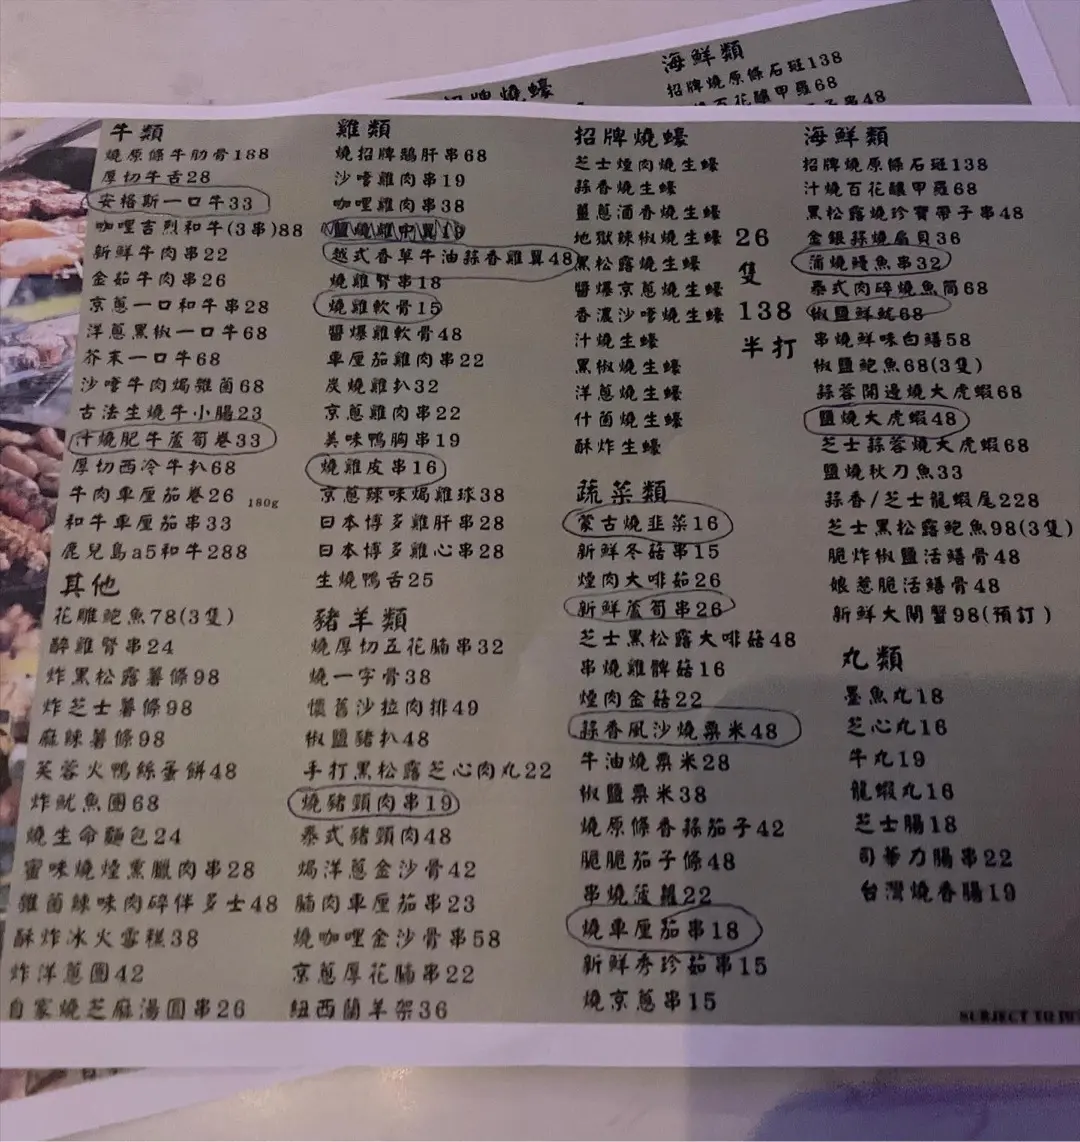 招牌燒蠔
海鮮類
招牌燒原條石斑138
燒百花釀甲羅68
子串48
牛類
燒原條牛肋骨188
厚切牛舌28
安格斯一口牛33
咖喱吉烈和牛(3串)88
新鮮牛肉串22
金茹牛肉串26
京蔥一口和牛串28
洋蔥黑椒一口牛68
芥末一口牛68
沙嗲牛肉焗雞菌68
古法生燒牛小腸23
汁燒肥牛蘆筍卷33
厚切西冷牛扒68
牛肉車厘茄卷26 180g
和牛車厘茄串33
鹿兒島a5和牛288
其他
花雕鮑魚78(3隻)
醉雞腎串24
炸黑松露薯條98
炸芝士薯條98
麻辣薯條98
芙蓉火鴨絲蛋餅48
炸魷魚圈68
燒生命麵包24
蜜味燒煙熏臘肉串28
雞菌辣味肉碎伴多士48
酥炸冰火雪糕38
炸洋蔥圈42
自家燒芝麻湯圓串26
雞類
燒招牌鵝肝串68
沙嗲雞肉串19
咖喱雞肉串38
鹽燒雞中翼19
越式香草牛油蒜香雞翼48
燒雞腎串18
燒雞軟骨15
醬爆雞軟骨48
車厘茄雞肉串22
炭燒雞扒32
京蔥雞肉串22
美味鴨胸串19
燒雞皮串16
京蔥辣味焗雞球38
日本博多雞肝串28
日本博多雞心串28
生燒鴨舌25
豬羊類
燒厚切五花腩串32
燒一字骨38
懷舊沙拉肉排49
椒鹽豬扒48
手打黑松露芝心肉丸22
燒豬頸肉串19
泰式豬頸肉48
焗洋蔥金沙骨42
腩肉車厘茄串23
燒咖喱金沙骨串58
京蔥厚花腩串22
紐西蘭羊架36
招牌燒蠔
芝士煙肉燒生蠔
蒜香燒生蠔
薑蔥酒香燒生蠔
地獄辣椒燒生蠔
黑松露燒生蠔
醬爆京蔥燒生蠔
香濃沙嗲燒生蠔
汁燒生蠔
黑椒燒生蠔
洋蔥燒生蠔
什菌燒生蠔
酥炸生蠔
26
隻
138
半打
蔬菜類
蒙古燒韭菜16
新鮮冬菇串15
煙肉大啡茹26
新鮮蘆筍串26
芝士黑松露大啡菇48
串燒雞髀菇16
煙肉金菇22
蒜香風沙燒粟米48
牛油燒粟米28
椒鹽粟米38
燒原條香蒜茄子42
脆脆茄子條48
串燒菠蘿22
燒車厘茄串18
新鮮秀珍茹串15
燒京蔥串15
海鮮類
招牌燒原條石斑138
汁燒百花釀甲羅68
黑松露燒珍寶帶子串48
金銀蒜燒扇貝36
蒲燒鰻魚串32
泰式肉碎燒魚筒68
椒鹽鮮魷68
串燒鮮味白鱔58
椒鹽鮑魚68(3隻)
蒜蓉開邊燒大虎蝦68
鹽燒大虎蝦48
芝士蒜蓉燒大虎蝦68
鹽燒秋刀魚33
蒜香/芝士龍蝦尾228
芝士黑松露鮑魚98(3隻)
脆炸椒鹽活鱔骨48
娘惹脆活鱔骨48
新鮮大閘蟹98(預訂)
丸類
墨魚丸18
芝心丸16
牛丸19
龍蝦丸16
芝士腸18
司華力腸串22
台灣燒香腸19
SUBJECT TO